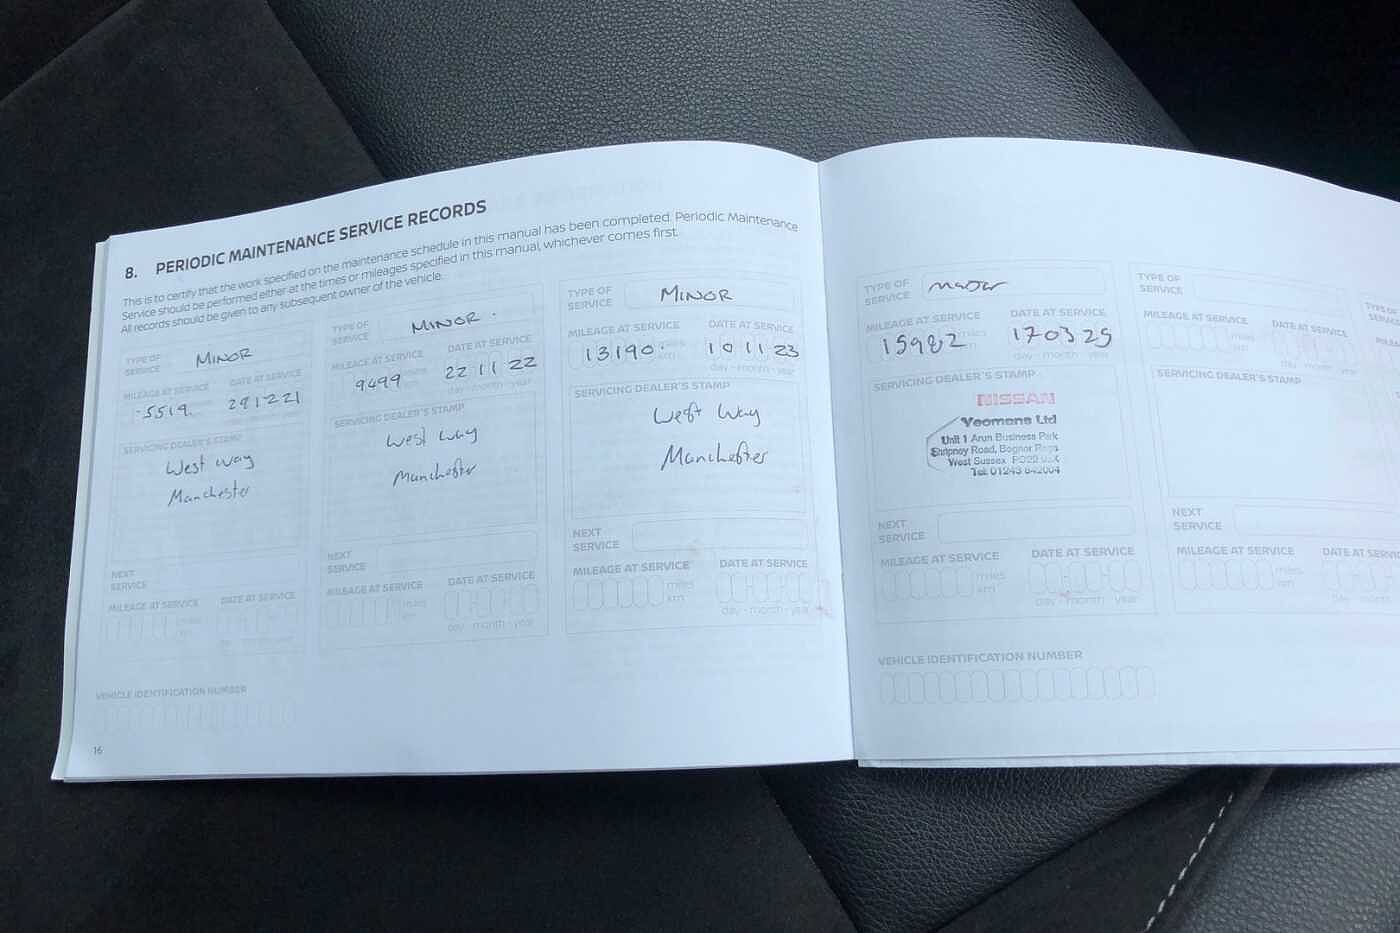 8. PERIODIC MAINTENANCE SERVICE RECORDS
This is to certify that the work specified on the maintenance schedule in this manual has been completed. Periodic Maintenance
Service should be performed either at the times or mileages specified in this manual, whichever comes first.
All records should be given to any subsequent owner of the vehicle.
TYPE OF
SERVICE
MINOR
MILEAGE AT SERVICE DATE AT SERVICE
5519 291221
SERVICING DEALER'S STAMP
West Way
Manchester
NEXT
SERVICE
MILEAGE AT SERVICE DATE AT SERVICE
VEHICLE IDENTIFICATION NUMBER
16
TYPE OF
SERVICE
MINOR.
MILEAGE AT SERVICE DATE AT SERVICE
9499 22 11 22
day - month - year
SERVICING DEALER'S STAMP
West Way
Manchester
NEXT
SERVICE
MILEAGE AT SERVICE DATE AT SERVICE
miles
km
day - month - year
TYPE OF
SERVICE
MINOR
MILEAGE AT SERVICE DATE AT SERVICE
13190 10 11 23
km
day - month - year
SERVICING DEALER'S STAMP
West Way
Manchester
NEXT
SERVICE
MILEAGE AT SERVICE DATE AT SERVICE
miles
km
day - month - year
TYPE OF
SERVICE
MILEAGE AT SERVICE DATE AT SERVICE
15982 miles 170325
km
day - month - year
SERVICING DEALER'S STAMP
NISSAN
Yeomans Ltd
Unit 1 Arun Business Park
Shripney Road, Bognor Regis
West Sussex PO22
Tel: 01243
NEXT
SERVICE
MILEAGE AT SERVICE DATE AT SERVICE
miles
km
day - month - year
VEHICLE IDENTIFICATION NUMBER
TYPE OF
SERVICE
MILEAGE AT SERVICE DATE AT SERVICE
miles
km
day - month
SERVICING DEALER'S STAMP
NEXT
SERVICE
MILEAGE AT SERVICE DATE AT
miles
km
day - month
TYPE
SERVI
MILEA